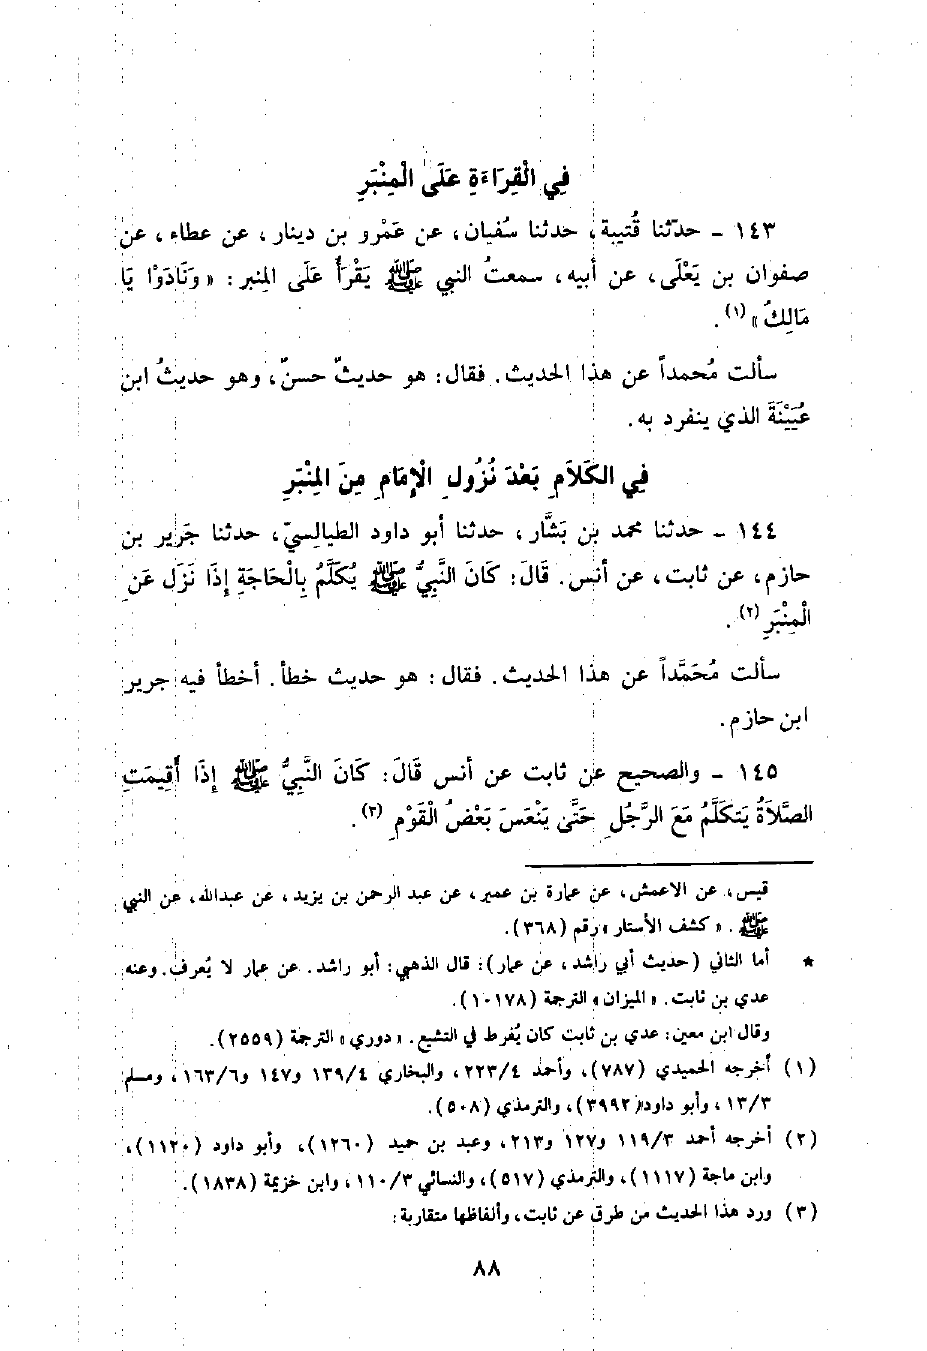 فِي الْقِرَاءَةِ عَلَى الْمِنْبَرِ
١٤٣ - حدّثنا قُتيبة، حدثنا سُفيان، عن عَمْرو بن دينار، عن عطاء، عن
صفوان بن يَعْلَى، عن أبيه، سمعتُ النبي ﷺ يَقْرَأُ عَلَى المِنبر: «وَنَادَوْا يَا
مَالِكُ»(١).
سألت مُحمداً عن هذا الحديث. فقال: هو حديثٌ حسنٌ، وهو حديثُ ابن
عُيَيْنَةَ الذي ينفرد به.
فِي الكَلاَمِ بَعْدَ نُزُولِ الْإِمَامِ مِنَ المِنْبَرِ
١٤٤ - حدثنا محمد بن بَشَّار، حدثنا أبو داود الطيالِسيّ، حدثنا جَرِير بن
حازم، عن ثابت، عن أنس. قَالَ: كَانَ النَّبِيُّ ﷺ يُكَلَّمُ بِالْحَاجَةِ إِذَا نَزَلَ عَنِ
الْمِنْبَرِ(٢).
سألت مُحَمَّداً عن هذا الحديث. فقال: هو حديث خطأ. أخطأ فيه جرير
ابن حازم.
١٤٥ - والصحيح عن ثابت عن أنس قَالَ: كَانَ النَّبِيُّ ﷺ إِذَا أُقِيمَتِ
الصَّلاَةُ يَتَكَلَّمُ مَعَ الرَّجُلِ حَتَّى يَنْعَسَ بَعْضُ الْقَوْمِ(٣).
قيس، عن الاعمش، عن عمارة بن عمير، عن عبد الرحمن بن يزيد، عن عبدالله، عن النبي
ﷺ. «كشف الأستار» رقم (٣٦٨).
* أما الثاني (حديث أبي راشد، عن عمار): قال الذهبي: أبو راشد. عن عمار لا يُعرف. وعنه
عدي بن ثابت. «الميزان» الترجمة (١٠١٧٨).
وقال ابن معين: عدي بن ثابت كان يُفرط في التشيع. «دوري» الترجمة (٢٥٥٩).
(١) أخرجه الحميدي (٧٨٧)، وأحمد ٢٢٣/٤، والبخاري ١٣٩/٤ و١٤٧ و١٦٣/٦، ومسلم
١٣/٣، وأبو داود (٣٩٩٢)، والترمذي (٥٠٨).
(٢) أخرجه أحمد ١١٩/٣ و١٢٧ و٢١٣، وعبد بن حميد (١٢٦٠)، وأبو داود (١١٢٠)،
وابن ماجة (١١١٧)، والترمذي (٥١٧)، والنسائي ١١٠/٣، وابن خزيمة (١٨٣٨).
(٣) ورد هذا الحديث من طرق عن ثابت، وألفاظها متقاربة:
٨٨